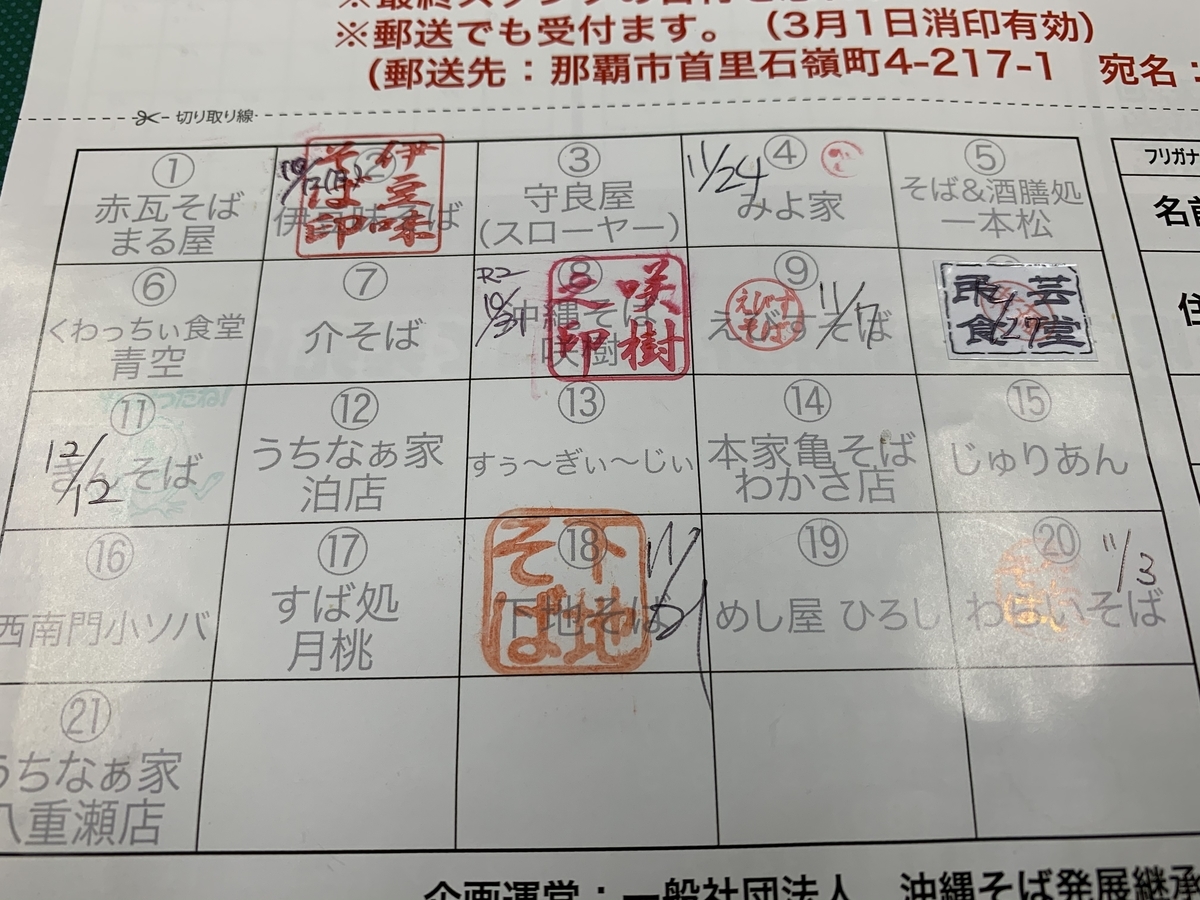 ※郵送でも受付ます。（3月1日消印有効）
（郵送先：那覇市首里石嶺町4-217-1　宛名：
切り取り線
フリガナ
①
赤瓦そば
まる屋
②
伊豆味そば
伊豆味
そば印
③
守良屋
(スローヤー)
11/24
④
みよ家
⑤
そば&酒膳処
一本松
⑥
くわっちぃ食堂
青空
⑦
介そば
R2
10/31
⑧
沖縄そば
咲樹
咲樹
之印
⑨
えびすそば
えびす
そば
11/7
芸
食堂
⑪
12/12
そば
⑫
うちなぁ家
泊店
⑬
すぅ〜ぎぃ〜じぃ
⑭
本家亀そば
わかさ店
⑮
じゅりあん
⑯
西南門小ソバ
⑰
すば処
月桃
⑱
下地そば
下地
そば
⑲
めし屋 ひろし
⑳
わらいそば
11/3
㉑
うちなぁ家
八重瀬店
企画運営：一般社団法人　沖縄そば発展継承